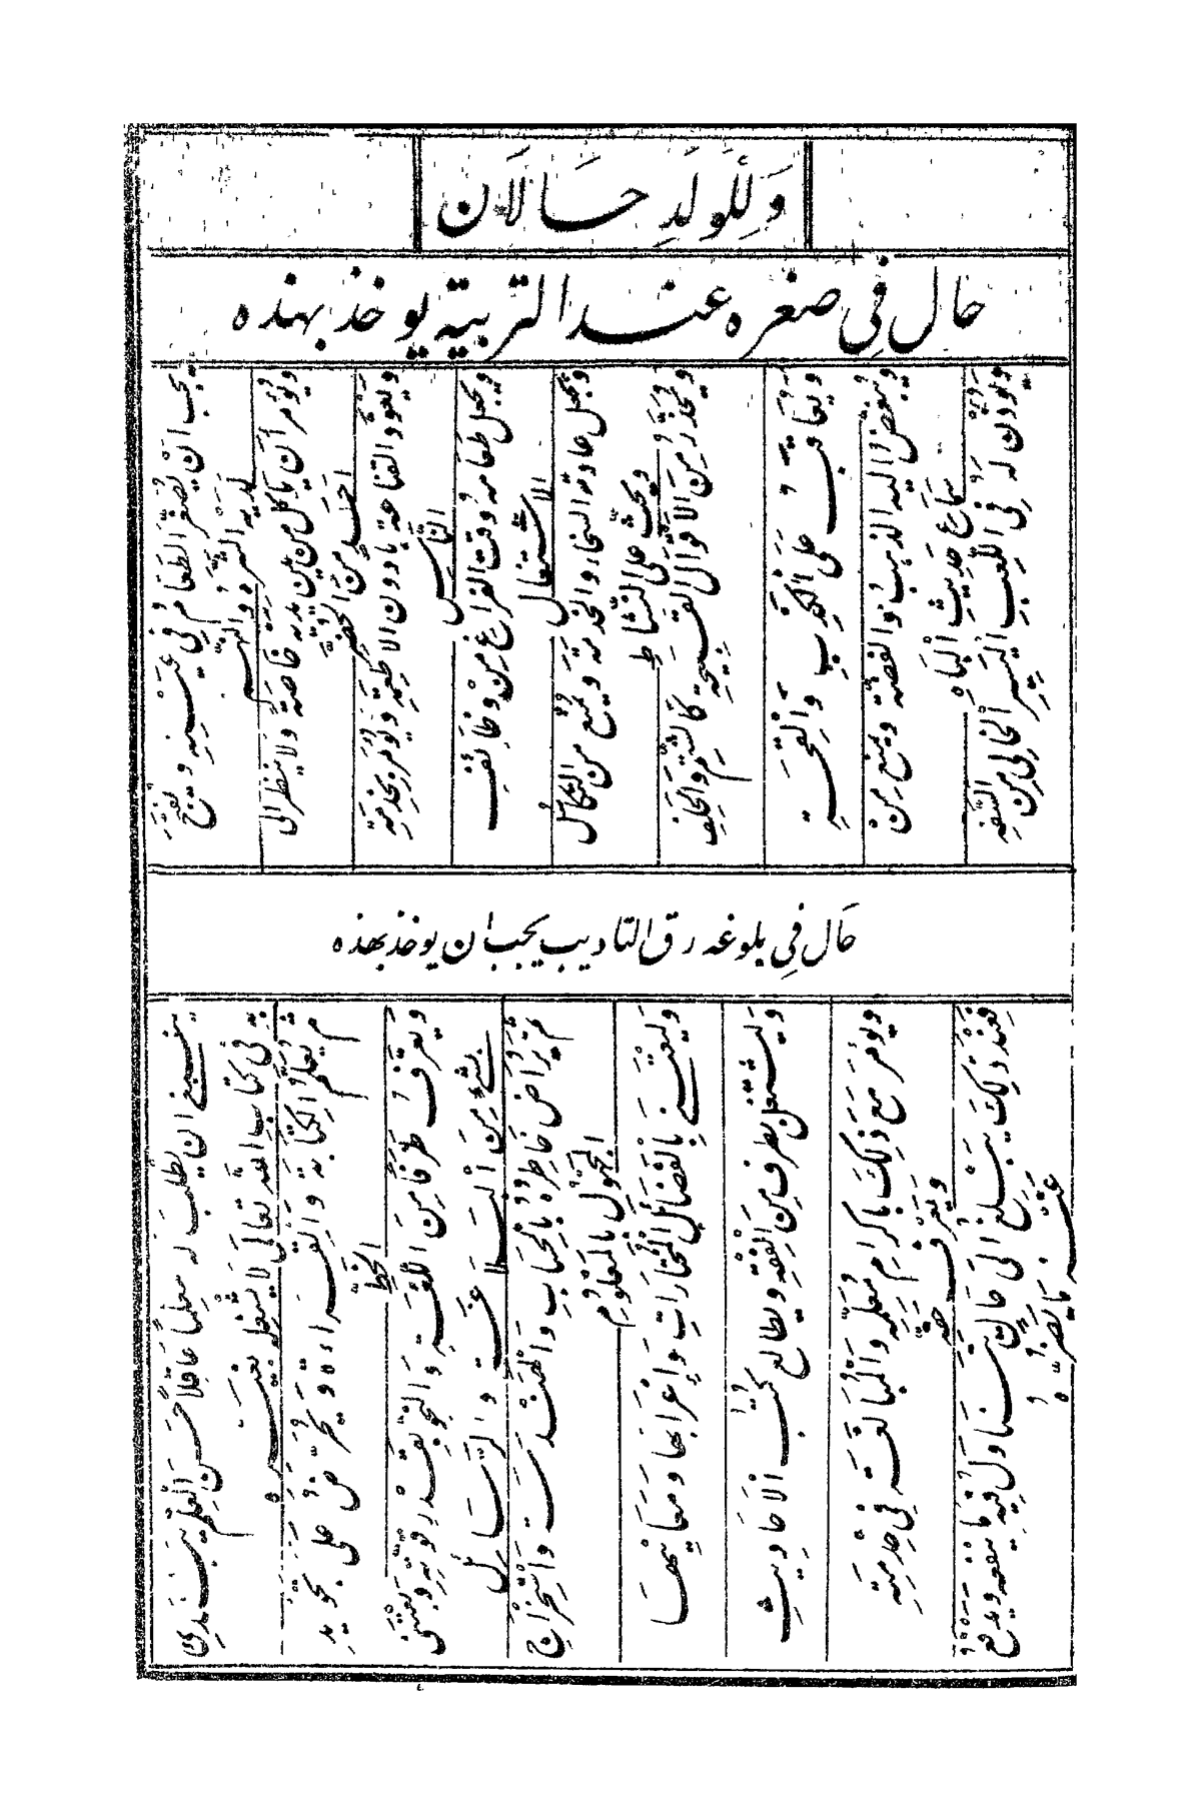 وَلِلْوَلَدِ حَالَان
حَال فِي صغره عند التربية يوخذ بهذه
يجب ان يُصغر الطعَامُ في عَيْنِهِ ويقبح
لديه الشره والنهم
ويُؤمر أن ياكل من بين يديه خاصةً ولا ينظر الى
احَدٍ مِنَ الحَضَرة
ويعود القناعة بادون الاطعمة ويؤمر بخدمة
النَّاس
ويجعل طعامه وقت الفراغ مِنْ وظائف
الاشتغال
ويجعل عادته السخاء والخدمة ويمنع من التكاسل
ويحث على النشاط
ويحذر مِنَ الاقوال القبيحة كالشتم والحلف
ويُعاقب على الكذب
ويُبغض اليه الذهب والفضة ويمنع مِنْ
سماع حَدِيثِ البَاهِ
ويؤذن له في اللعِب اليسير الخالي مِنَ السَّفَه
حَال فِي بلوغه رق التاديب يجب ان يوخذ بهذه
ينبغي ان يطلب له معلِمًا عَاقِلًا حَسَنَ العِلم يبتدي
به في كتاب الله تعالى لا يشغله بغيره
ثم تعلُّم الكِتابَة وَالقراءة ويحرّض على تجويد
الخطّ
ويعرف طَرَفًا مِنَ اللغَةِ والنحو بقدر قوته ويعتني
بشيء مِنَ البلاغة والرسائل
ثم يُراضُ خَاطِره بالحِسَابِ والهَنْدسة واستخراج
المجهول بالمعلوم
وليعتني بالفضائل المختارات وإعرابها ومعانيها
وليشتغل بطرف مِنَ الفقه ويطالع كتب الاحاديث
ويؤمر مع ذلك باكرام معلمه والمبالغة في خدمته
ويعرف حقه
فعند ذلك يبلغ الى حالة يتناول فيه ما ينفعه ويدفع
عنه ما يضره